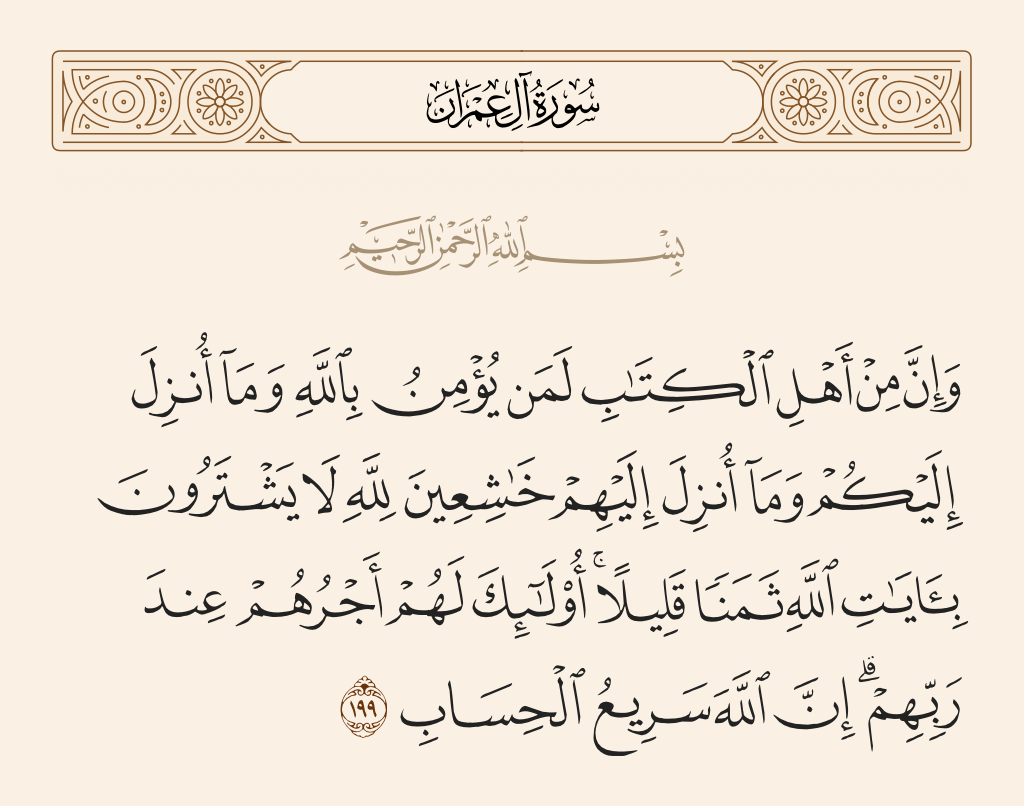 سُورَةُ آلِ عِمْرَانَ
بِسْمِ ٱللَّهِ ٱلرَّحْمَٰنِ ٱلرَّحِيمِ
وَإِنَّ مِنْ أَهْلِ ٱلْكِتَٰبِ لَمَن يُؤْمِنُ بِٱللَّهِ وَمَآ أُنزِلَ
إِلَيْكُمْ وَمَآ أُنزِلَ إِلَيْهِمْ خَٰشِعِينَ لِلَّهِ لَا يَشْتَرُونَ
بِـَٔايَٰتِ ٱللَّهِ ثَمَنًا قَلِيلًا ۚ أُو۟لَٰٓئِكَ لَهُمْ أَجْرُهُمْ عِندَ
رَبِّهِمْ ۗ إِنَّ ٱللَّهَ سَرِيعُ ٱلْحِسَابِ ١٩٩